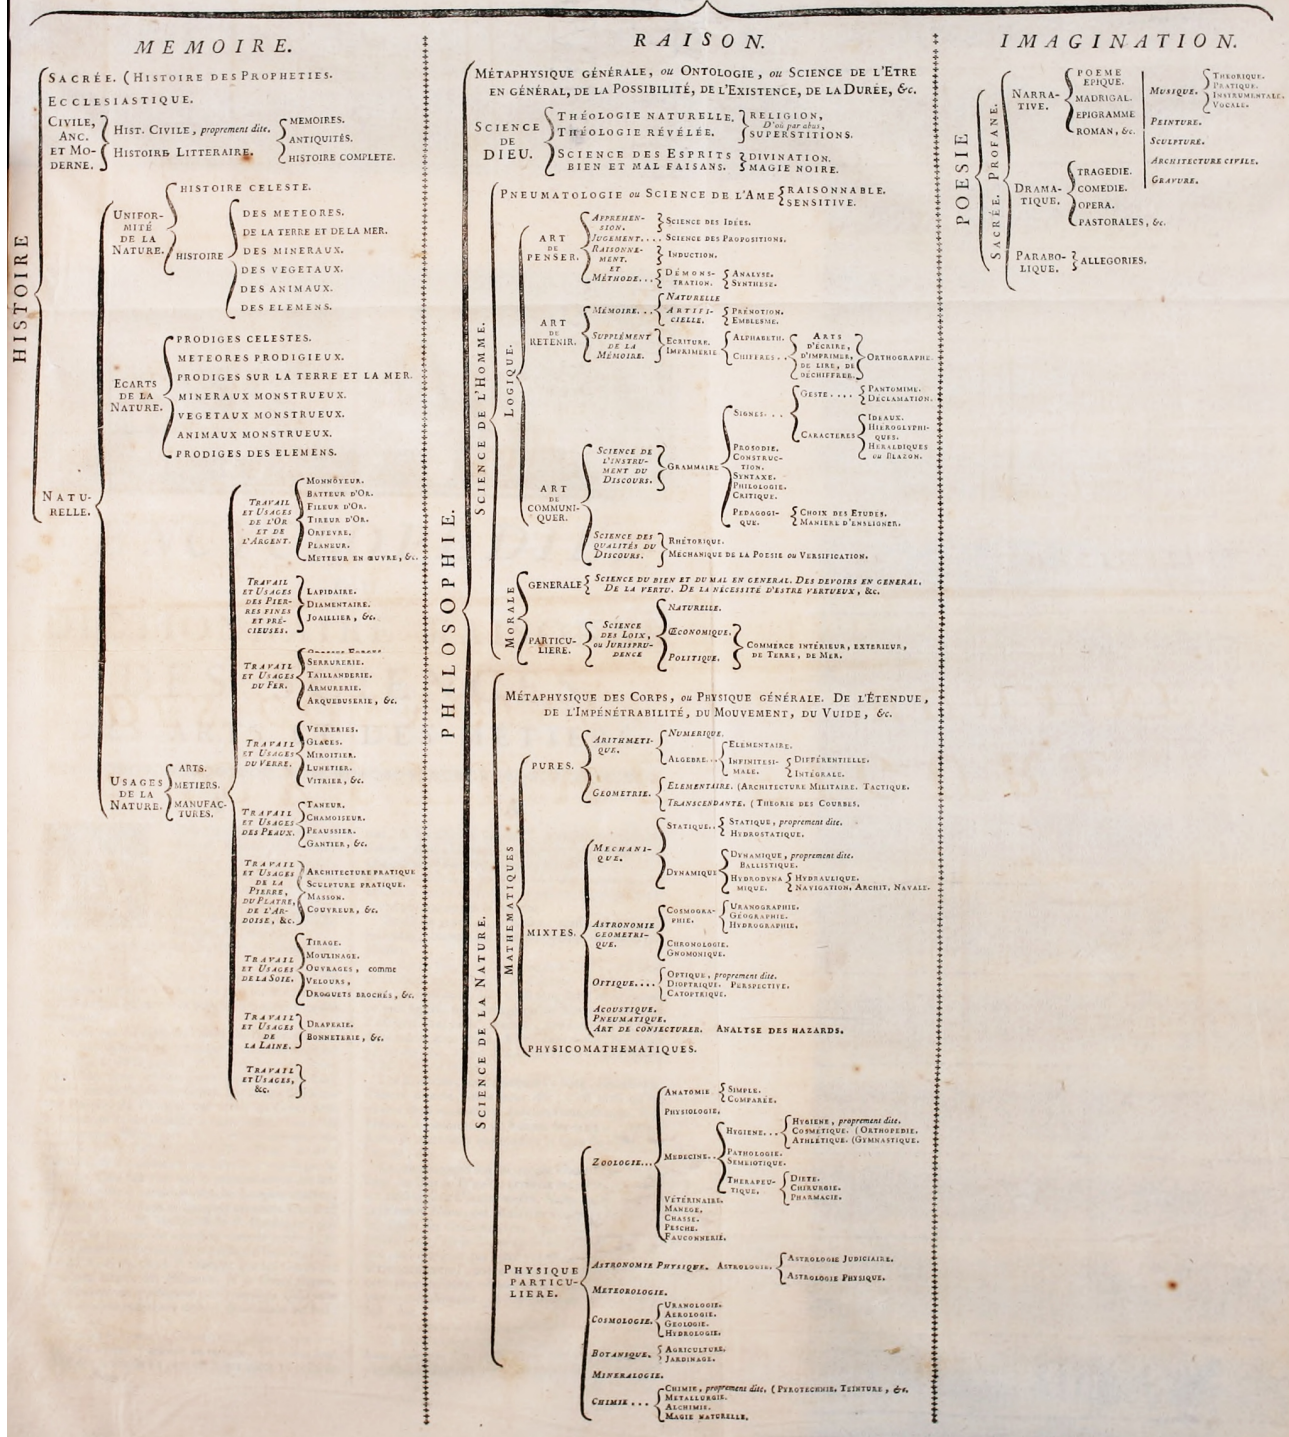 MEMOIRE.
SACRÉE. (HISTOIRE DES PROPHETIES.
ECCLESIASTIQUE.
CIVILE,
ANC.
ET MO-
DERNE.
HIST. CIVILE, proprement dite.
HISTOIRE LITTERAIRE.
MEMOIRES.
ANTIQUITÉS.
HISTOIRE COMPLETE.
HISTOIRE
UNIFOR-
MITÉ
DE LA
NATURE.
HISTOIRE CELESTE.
HISTOIRE
DES METEORES.
DE LA TERRE ET DE LA MER.
DES MINERAUX.
DES VEGETAUX.
DES ANIMAUX.
DES ELEMENS.
ECARTS
DE LA
NATURE.
PRODIGES CELESTES.
METEORES PRODIGIEUX.
PRODIGES SUR LA TERRE ET LA MER.
MINERAUX MONSTRUEUX.
VEGETAUX MONSTRUEUX.
ANIMAUX MONSTRUEUX.
PRODIGES DES ELEMENS.
NATU-
RELLE.
USAGES
DE LA
NATURE.
ARTS.
METIERS.
MANUFAC-
TURES.
TRAVAIL
ET USAGES
DE L'OR
ET DE
L'ARGENT.
MONNOYEUR.
BATTEUR D'OR.
FILEUR D'OR.
TIREUR D'OR.
ORFEVRE.
PLANEUR.
METTEUR EN ŒUVRE, &c.
TRAVAIL
ET USAGES
DES PIER-
RES FINES
ET PRÉ-
CIEUSES.
LAPIDAIRE.
DIAMENTAIRE.
JOAILLIER, &c.
TRAVAIL
ET USAGES
DU FER.
SERRURERIE.
TAILLANDERIE.
ARMURERIE.
ARQUEBUSERIE, &c.
TRAVAIL
ET USAGES
DU VERRE.
VERRERIES.
GLACES.
MIROITIER.
LUNETIER.
VITRIER, &c.
TRAVAIL
ET USAGES
DES PEAUX.
TANEUR.
CHAMOISEUR.
PEAUSSIER.
GANTIER, &c.
TRAVAIL
ET USAGES
DE LA
PIERRE,
DU PLATRE,
DE L'AR-
DOISE, &c.
ARCHITECTURE PRATIQUE
SCULPTURE PRATIQUE.
MASSON.
COUVREUR, &c.
TRAVAIL
ET USAGES
DE LA SOIE.
TIRAGE.
MOULINAGE.
OUVRAGES, comme
VELOURS,
DROGUETS BROCHÉS, &c.
TRAVAIL
ET USAGES
DE
LA LAINE.
DRAPERIE.
BONNETERIE, &c.
TRAVAIL
ET USAGES,
&c.
RAISON.
MÉTAPHYSIQUE GÉNÉRALE, ou ONTOLOGIE, ou SCIENCE DE L'ETRE
EN GÉNÉRAL, DE LA POSSIBILITÉ, DE L'EXISTENCE, DE LA DURÉE, &c.
SCIENCE
DE
DIEU.
THÉOLOGIE NATURELLE.
THÉOLOGIE RÉVÉLÉE.
RELIGION,
D'où par abus,
SUPERSTITIONS.
SCIENCE DES ESPRITS
BIEN ET MAL FAISANS.
DIVINATION.
MAGIE NOIRE.
PHILOSOPHIE.
SCIENCE DE L'HOMME.
PNEUMATOLOGIE ou SCIENCE DE L'AME
RAISONNABLE.
SENSITIVE.
LOGIQUE.
ART
DE
PENSER.
APPREHEN-
SION.
SCIENCE DES IDÉES.
JUGEMENT....
SCIENCE DES PROPOSITIONS.
RAISONNE-
MENT.
INDUCTION.
ET
MÉTHODE...
DÉMONS-
TRATION.
ANALYSE.
SYNTHESE.
ART
DE
RETENIR.
MÉMOIRE...
NATURELLE
ARTIFI-
CIELLE.
PRÉNOTION.
EMBLESME.
SUPPLÉMENT
DE LA
MÉMOIRE.
ECRITURE.
IMPRIMERIE
ALPHABETH.
CHIFFRES..
ARTS
D'ÉCRIRE,
D'IMPRIMER,
DE LIRE, DE
DÉCHIFFRER.
ORTHOGRAPHE.
ART
DE
COMMUNI-
QUER.
SCIENCE DE
L'INSTRU-
MENT DU
DISCOURS.
GRAMMAIRE
SIGNES...
GESTE....
PANTOMIME.
DÉCLAMATION.
CARACTERES
IDÉAUX.
HIÉROGLYPHI-
QUES.
HERALDIQUES
OU BLAZON.
PROSODIE.
CONSTRUC-
TION.
SYNTAXE.
PHILOLOGIE.
CRITIQUE.
PEDAGOGI-
QUE.
CHOIX DES ETUDES.
MANIERE D'ENSEIGNER.
SCIENCE DES
QUALITÉS DU
DISCOURS.
RHÉTORIQUE.
MECHANIQUE DE LA POESIE ou VERSIFICATION.
MORALE
GENERALE
SCIENCE DU BIEN ET DU MAL EN GENERAL. DES DEVOIRS EN GENERAL.
DE LA VERTU. DE LA NÉCESSITÉ D'ESTRE VERTUEUX, &c.
PARTICU-
LIERE.
SCIENCE
DES LOIX,
ou JURISPRU-
DENCE
NATURELLE.
ŒCONOMIQUE.
POLITIQUE.
COMMERCE INTÉRIEUR, EXTERIEUR,
DE TERRE, DE MER.
SCIENCE DE LA NATURE.
MÉTAPHYSIQUE DES CORPS, ou PHYSIQUE GÉNÉRALE. DE L'ÉTENDUE,
DE L'IMPÉNÉTRABILITÉ, DU MOUVEMENT, DU VUIDE, &c.
MATHEMATIQUES
PURES.
ARITHMETI-
QUE.
NUMERIQUE.
ALGEBRE...
ELEMENTAIRE.
INFINITESI-
MALE.
DIFFÉRENTIELLE.
INTÉGRALE.
GEOMETRIE.
ELEMENTAIRE. (ARCHITECTURE MILITAIRE. TACTIQUE.
TRANSCENDANTE. (THEORIE DES COURBES.
MIXTES.
MECHANI-
QUE.
STATIQUE..
STATIQUE, proprement dite.
HYDROSTATIQUE.
DYNAMIQUE
DYNAMIQUE, proprement dite.
BALLISTIQUE.
HYDRODYNA
MIQUE.
HYDRAULIQUE.
NAVIGATION, ARCHIT. NAVALE.
ASTRONOMIE
GEOMETRI-
QUE.
COSMOGRA-
PHIE.
URANOGRAPHIE.
GÉOGRAPHIE.
HYDROGRAPHIE.
CHRONOLOGIE.
GNOMONIQUE.
OPTIQUE....
OPTIQUE, proprement dite.
DIOPTRIQUE. PERSPECTIVE.
CATOPTRIQUE.
ACOUSTIQUE.
PNEUMATIQUE.
ART DE CONJECTURER. ANALYSE DES HAZARDS.
PHYSICOMATHEMATIQUES.
PHYSIQUE
PARTICU-
LIERE.
ZOOLOGIE...
ANATOMIE
SIMPLE.
COMPARÉE.
PHYSIOLOGIE.
MEDECINE..
HYGIENE...
HYGIENE, proprement dite.
COSMÉTIQUE. (ORTHOPEDIE.
ATHLÉTIQUE. (GYMNASTIQUE.
PATHOLOGIE.
SEMEIOTIQUE.
THERAPEU-
TIQUE.
DIETE.
CHIRURGIE.
PHARMACIE.
VÉTÉRINAIRE.
MANEGE.
CHASSE.
PESCHE.
FAUCONNERIE.
ASTRONOMIE PHYSIQUE. ASTROLOGIE.
ASTROLOGIE JUDICIAIRE.
ASTROLOGIE PHYSIQUE.
METEOROLOGIE.
COSMOLOGIE.
URANOLOGIE.
AEROLOGIE.
GEOLOGIE.
HYDROLOGIE.
BOTANIQUE.
AGRICULTURE.
JARDINAGE.
MINERALOGIE.
CHIMIE...
CHIMIE, proprement dite. (PYROTECHNIE. TEINTURE, &c.
METALLURGIE.
ALCHIMIE.
MAGIE NATURELLE.
IMAGINATION.
POESIE
SACRÉE. PROFANE.
NARRA-
TIVE.
POEME
EPIQUE.
MADRIGAL.
EPIGRAMME
ROMAN, &c.
DRAMA-
TIQUE.
TRAGEDIE.
COMEDIE.
OPERA.
PASTORALES, &c.
PARABO-
LIQUE.
ALLEGORIES.
MUSIQUE.
THEORIQUE.
PRATIQUE.
INSTRUMENTALE.
VOCALE.
PEINTURE.
SCULPTURE.
ARCHITECTURE CIVILE.
GRAVURE.